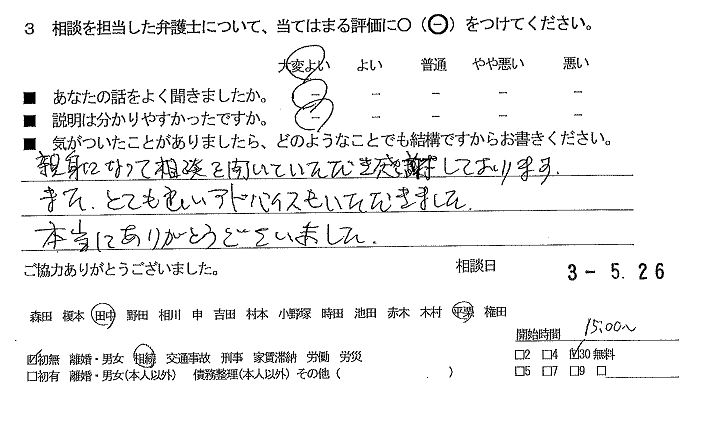 3 相談を担当した弁護士について、当てはまる評価に○（⊖）をつけてください。
大変よい よい 普通 やや悪い 悪い
■ あなたの話をよく聞きましたか。 － － － － －
■ 説明は分かりやすかったですか。 － － － － －
■ 気がついたことがありましたら、どのようなことでも結構ですからお書きください。
親身になって相談を聞いていただき感謝しております。
また、とても良いアドバイスもいただきました。
本当にありがとうございました。
ご協力ありがとうございました。 相談日 3－5.26
森田 榎本 田中 野田 相川 申 吉田 村本 小野塚 時田 池田 赤木 木村 平栗 権田
開始時間 15:00～
☑初無 離婚・男女 相続 交通事故 刑事 家賃滞納 労働 労災 □2 □4 ☑30 無料
□初有 離婚・男女(本人以外) 債務整理(本人以外) その他 ( ) □5 □7 □9 □